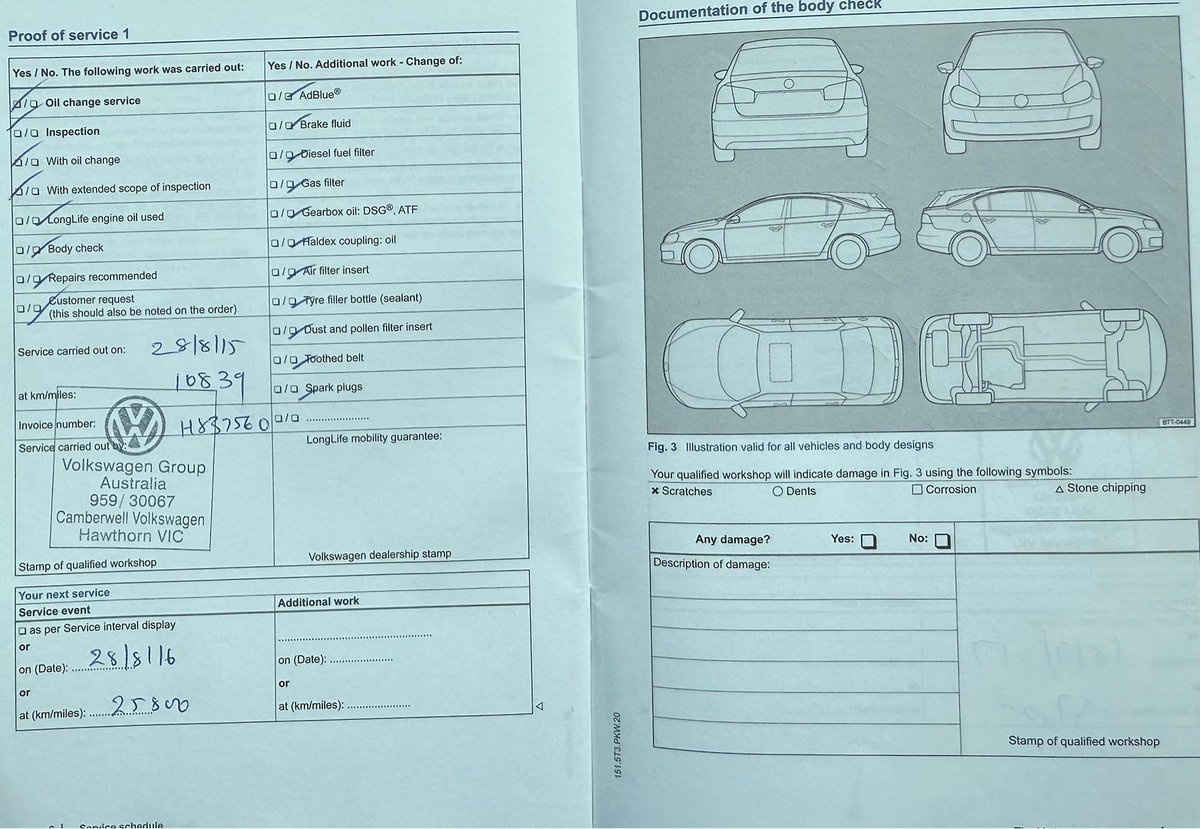 Proof of service 1
Yes / No. The following work was carried out:
☑/☐ Oil change service
☐/☐ Inspection
☑/☐ With oil change
☑/☐ With extended scope of inspection
☐/☑ LongLife engine oil used
☐/☑ Body check
☐/☑ Repairs recommended
☐/☑ Customer request
(this should also be noted on the order)
Service carried out on: 28/8/15
at km/miles: 10839
Invoice number: H837560
Service carried out by:
Volkswagen Group
Australia
959/ 30067
Camberwell Volkswagen
Hawthorn VIC
Stamp of qualified workshop
Yes / No. Additional work - Change of:
☐/☑ AdBlue®
☐/☑ Brake fluid
☐/☑ Diesel fuel filter
☐/☑ Gas filter
☐/☑ Gearbox oil: DSG®, ATF
☐/☑ Haldex coupling: oil
☐/☑ Air filter insert
☐/☑ Tyre filler bottle (sealant)
☐/☑ Dust and pollen filter insert
☐/☑ Toothed belt
☐/☑ Spark plugs
☐/☐ ....................
LongLife mobility guarantee:
Volkswagen dealership stamp
Your next service
Service event
☐ as per Service interval display
or
on (Date): 28/8/16
or
at (km/miles): 25800
Additional work
on (Date): ....................
or
at (km/miles): ....................
Service schedule
Documentation of the body check
BTT-0449
Fig. 3 Illustration valid for all vehicles and body designs
Your qualified workshop will indicate damage in Fig. 3 using the following symbols:
✖ Scratches ○ Dents ☐ Corrosion △ Stone chipping
Any damage? Yes: ☐ No: ☐
Description of damage:
Stamp of qualified workshop
151.5T3.PKW.20